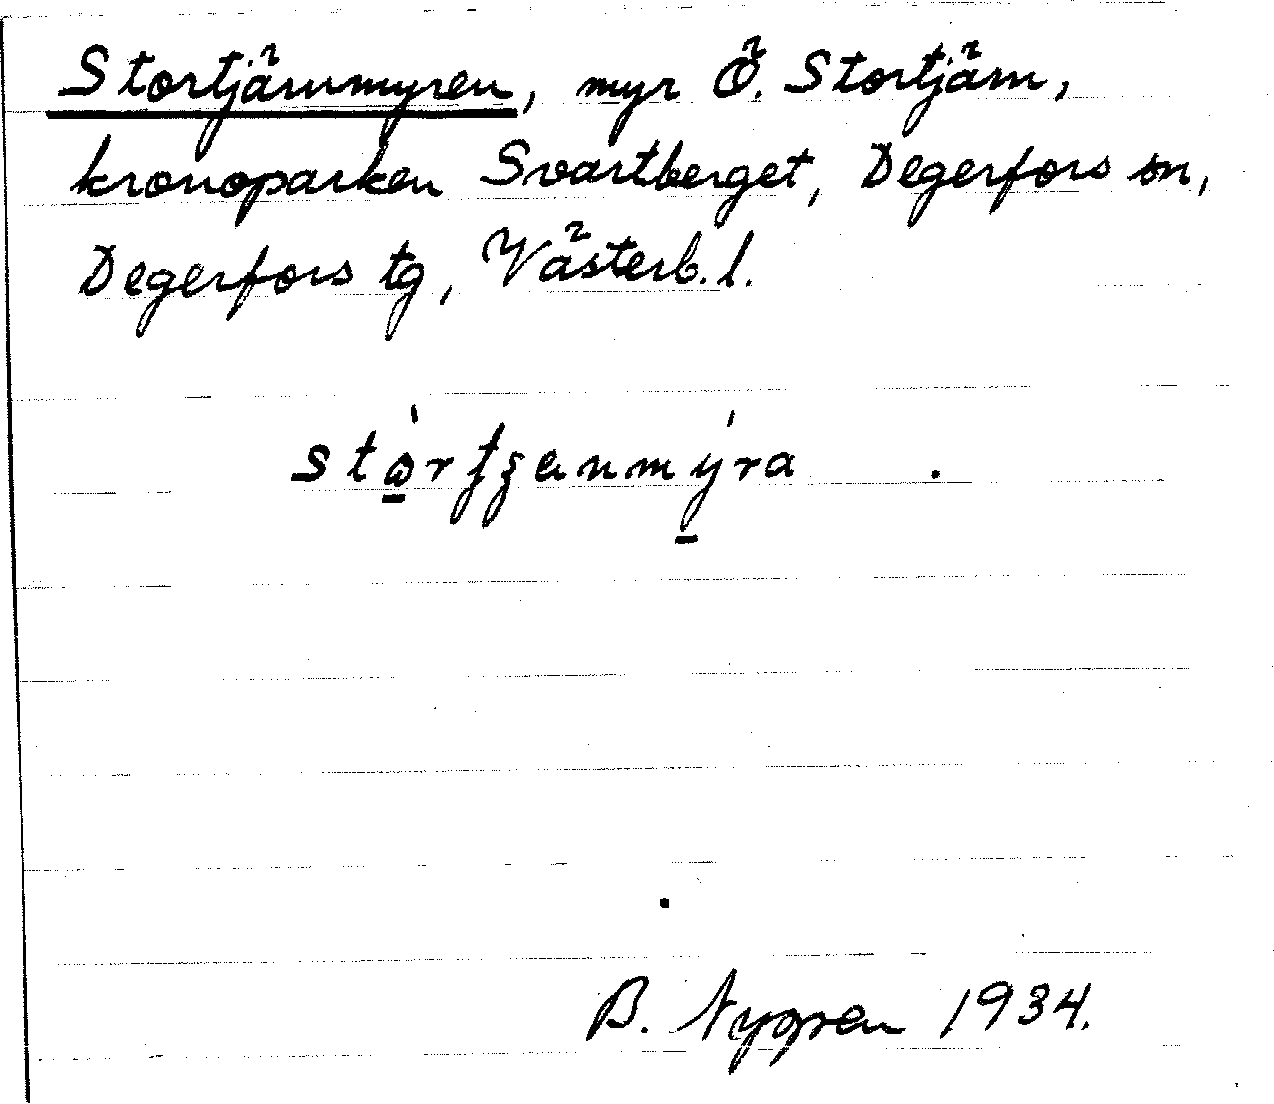 Stortjärnmyren, myr Ö. Stortjärn,
kronoparken Svartberget, Degerfors sn,
Degerfors tg, Västerb. l.
B. Nygren 1934.